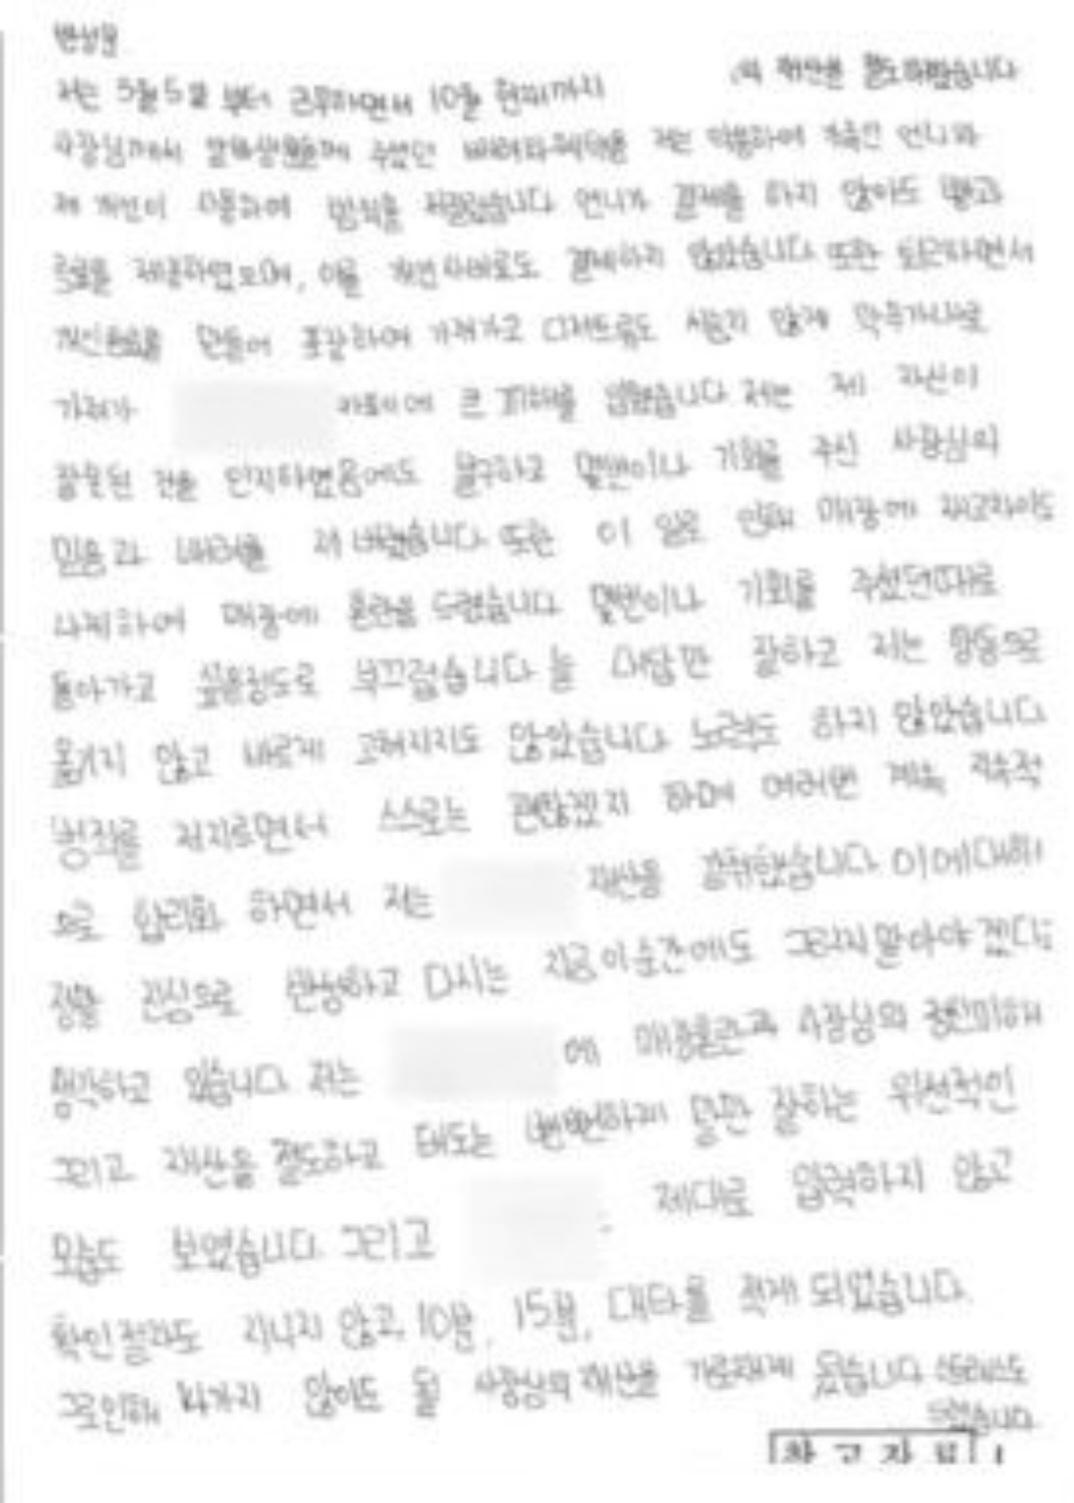 반성문
저는 5월 5일 부터 근무하면서 10월 현재까지 의 재산을 절도하였습니다
사장님께서 알바생들에게 주셨던 배려와 혜택을 저는 악용하여 가족인 언니와
제 개인이 하여 범죄를 저질렀습니다 언니가 결제를 하지 않아도 빵과
음료를 제공하였으며, 이를 개인사비로도 결제하지 않았습니다 또한 퇴근하면서
개인음료를 만들어 포장하여 가져가고 디저트류도 서슴지 않게 막무가내로
가져가 카페에 큰 피해를 입혔습니다 저는 제 자신이
잘못된 것을 인지하였음에도 불구하고 몇번이나 기회를 주신 사장님의
믿음과 배려를 져 버렸습니다 또한 이 일로 인해 매장에 재고차이도
나게하여 매장에 혼란을 드렸습니다 몇번이나 기회를 주셨던때로
돌아가고 싶을정도로 부끄럽습니다 늘 대답만 잘하고 저는 행동으로
옮기지 않고 바르게 고쳐지지도 않았습니다 노력도 하지 않았습니다
범죄를 저지르면서 스스로는 괜찮겠지 하며 여러번 계속 지속적
으로 합리화 하면서 저는 재산을 갈취했습니다 이에대해
정말 진심으로 반성하고 다시는 지금 이순간에도 그러지말아야겠다
생각하고 있습니다 저는 에 매장물건과 사장님의
그리고 재산을 절도하고 태도는 뻔뻔하게 말만 잘하는 위선적인
모습도 보였습니다. 그리고 제대로 입력하지 않고
확인절차도 지니지 않고 10분, 15분, 대타를 적게 되었습니다.
그로인해 나가지 않아도 될 사장님의 재산을 가로채게 됐습니다 스트레스도
드렸습니다.
참 고 자 료 1